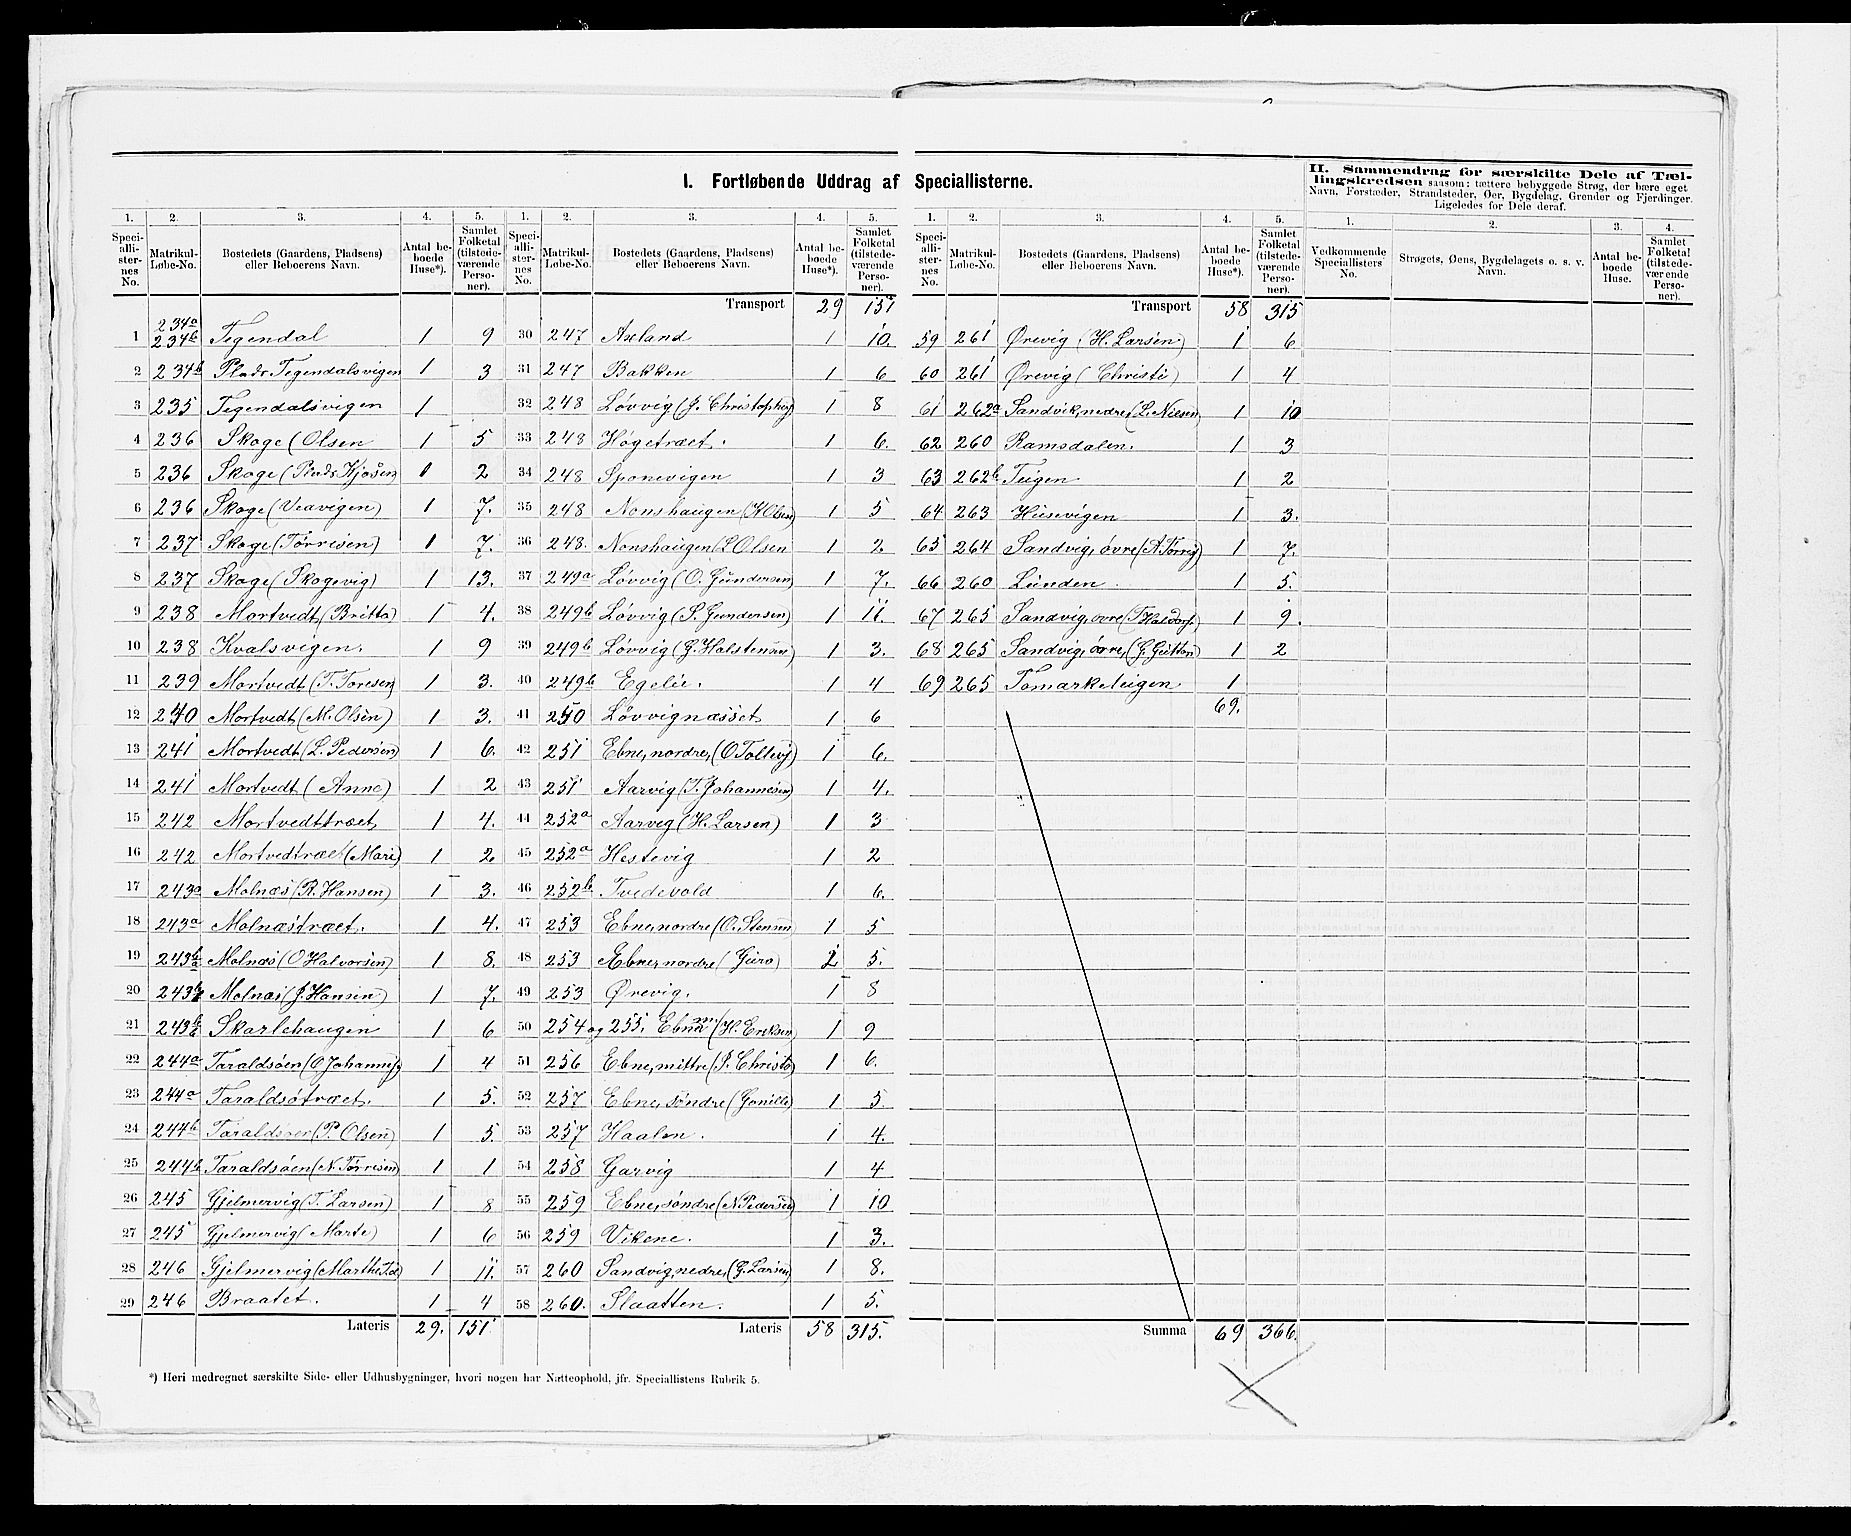 I. Fortløbende Uddrag af Speciallisterne.
1. 2. 3. 4. 5.
Speciallisternes No. Matrikul-Løbe-No. Bostedets (Gaardens, Pladsens) eller Beboerens Navn. Antal beboede Huse*). Samlet Folketal (tilstedeværende Personer).
1 234a 234b Tegendal 1 9
2 234b Plads Tegendalsvigen 1 3
3 235 Tegendalsvigen 1
4 236 Skoge (Olsen 1 5
5 236 Skoge (Plads Kjosen) 1 2
6 236 Skoge (Veavigen) 1 7.
7 237 Skoge (Tørrisen) 1 7.
8 237 Skoge (Skogevig) 1 13.
9 238 Mortvedt (Britta) 1 4.
10 238 Kvalsvigen. 1 9
11 239 Mortvedt (T. Toresen) 1 3.
12 240 Mortvedt (M. Olsen) 1 3.
13 241 Mortvedt (L. Pedersen) 1 6.
14 241 Mortvedt (Anne) 1 2
15 242 Mortvedttræet 1 4.
16 242 Mortvedtræet (Mari) 1 2
17 243a Molnæs (R. Hansen) 1 3.
18 243a Molnæstræet. 1 4.
19 243b Molnæs (O Halvorsen) 1 8.
20 243b Molnæs (J. Hansen) 1 7.
21 243b Skarlehaugen 1 6
22 244a Taraldsøen (O Johannes. 1 4
23 244a Taraldsøtræet. 1 5.
24 244b Taraldsøen (P. Olsen) 1 5.
25 244b Taraldsøen (N. Tørrisen) 1 1
26 245 Gjelmervig (T. Larsen) 1 8
27 245 Gjelmervig (Marte) 1 6
28 246 Gjelmervig (Marthe 1 11.
29 246 Braatet. 1 4
Lateris 29. 151
*) Heri medregnet særskilte Side- eller Udhusbygninger, hvori nogen har Natteophold, jfr. Speciallistens Rubrik 5.
1. 2. 3. 4. 5.
Speciallisternes No. Matrikul-Løbe-No. Bostedets (Gaardens, Pladsens) eller Beboerens Navn. Antal beboede Huse*). Samlet Folketal (tilstedeværende Personer).
Transport 29 151
30 247 Axland 1 10.
31 247 Bakken 1 6
32 248 Løvvig (J. Christophers) 1 8
33 248 Høgetræet. 1 6.
34 248 Sponevigen 1 3
35 248 Nonshaugen (K Olsen) 1 5
36 248. Nonshaugen (L Olsen 1 2
37 249a Løvvig (O. Gundersen) 1 7.
38 249b Løvvig (S. Gundersen) 1 11.
39 249b Løvvig (G. Halstensen) 1 3.
40 249b Egelie. 1 4
41 250 Løvvignæsset 1 6
42 251 Ebne, nordre, (O Tollevs) 1 6.
43 251 Aarvig (T. Johannesen) 1 4.
44 252a Aarvig (H. Larsen) 1 3
45 252a Hestevig 1 2
46 252b Tvedevold 1 6.
47 253 Ebne, nordre (O. Stensen) 1 5
48 253 Ebne, nordre (Guro) 1 5.
49 253 Ørevig. 1 8
50 254 og 255. Ebne m. (H. Eriksen 1 9
51 256 Ebne, mittre (P. Christo) 1 6.
52 257 Ebne, søndre (Gonille) 1 5.
53 257 Haalen. 1 4.
54 258 Garvig 1 4
55 259 Ebne, søndre (N. Pedersen) 1 10
56 259 Vikene. 1 3.
57 260 Sandvig, nedre, (G. Larsen) 1 8.
58 260. Slaatten. 1 5.
Lateris 58 315.
1. 2. 3. 4. 5.
Speciallisternes No. Matrikul-Løbe-No. Bostedets (Gaardens, Pladsens) eller Beboerens Navn. Antal beboede Huse*). Samlet Folketal (tilstedeværende Personer).
Transport 58 315
59 261 Ørevig (H. Larsen) 1 6
60 261 Ørevig (Christi) 1 4
61 262a Sandvik, nedre, (L. Nilsen) 1 10
62 260 Ramsdalen. 1 3
63 262b Teigen 1 2
64 263 Husevigen 1 3.
65 264 Sandvig, øvre (A. Tørris) 1 7.
66 260 Lunden. 1 5.
67 265 Sandvig, øvre (T Haldors.) 1 9.
68 265 Sandvig, øvre, (G. Guttorm) 1 2
69 265 Tomarketeigen 1
69.
Summa 69 366.
II. Sammendrag for særskilte Dele af Tællingskredsen saasom: tættere bebyggede Strøg, der bære eget Navn, Forstæder, Strandsteder, Øer, Bygdelag, Grender og Fjerdinger. Ligeledes for Dele deraf.
1. 2. 3. 4.
Vedkommende Speciallisters No. Strøgets, Øens, Bygdelagets o. s. v. Navn. Antal beboede Huse. Samlet Folketal (tilstedeværende Personer).